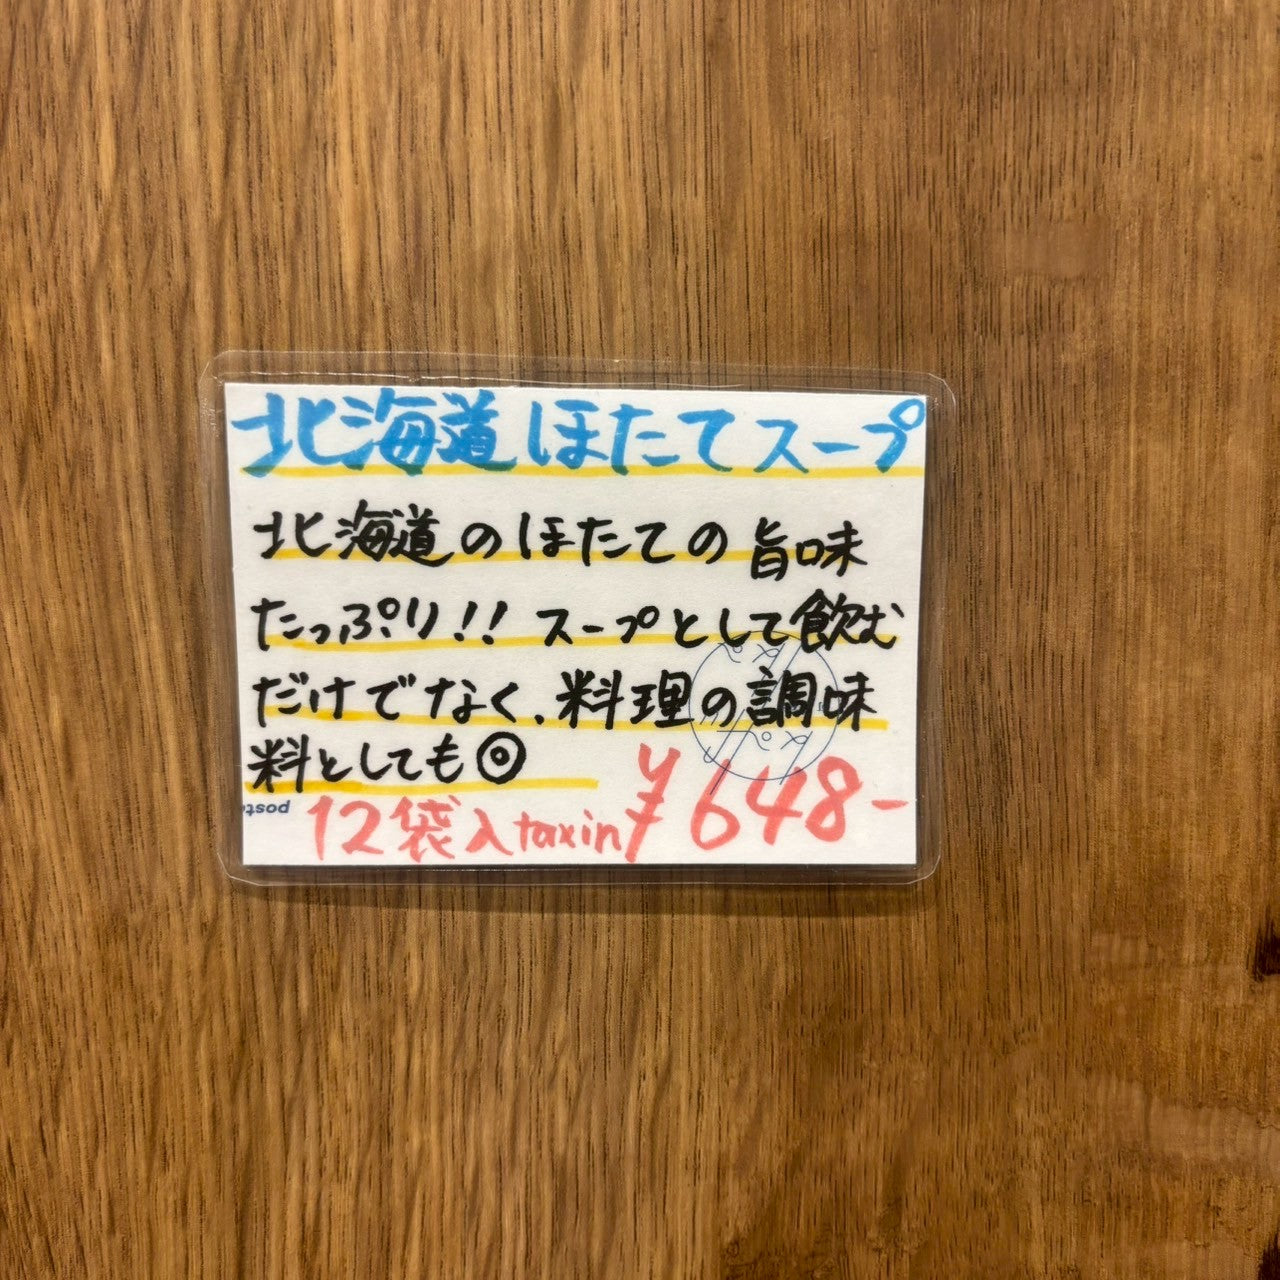 北海道ほたてスープ
北海道のほたての旨味
たっぷり!! スープとして飲む
だけでなく、料理の調味
料としても◎
12袋入taxin¥648-